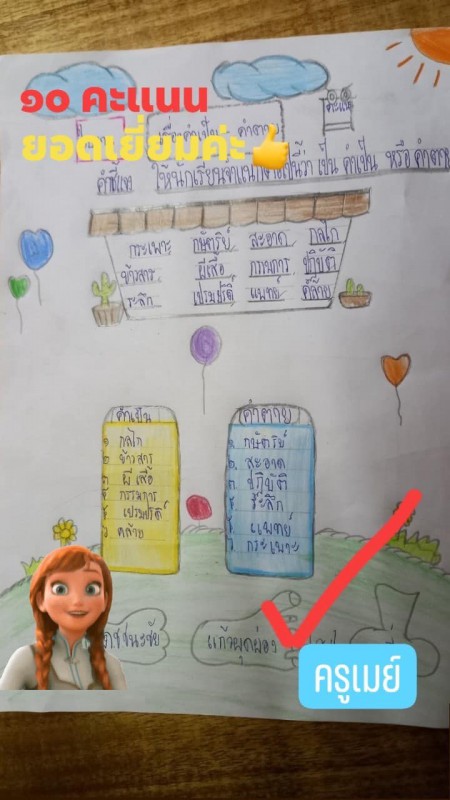 ๑๐ คะแนน
ยอดเยี่ยมค่ะ
คะแนน
คำชี้แจง ให้นักเรียนจำแนกคำต่อไปนี้ว่า เป็น คำเป็น หรือ คำตาย
กระเพาะ กษัตริย์ สะอาด กลไก
ข้าวสาร ผีเสื้อ กรรมการ ปฏิบัติ
ระลึก เปรมปรีดิ์ แพทย์ คล้าย
คำเป็น
๑ กลไก
๒ ข้าวสาร
๓ ผีเสื้อ
๔ กรรมการ
๕ เปรมปรีดิ์
๖ คล้าย
คำตาย
๑. กษัตริย์
๒. สะอาด
๓. ปฏิบัติ
๔. ระลึก
๕. แพทย์
๖ กระเพาะ
แก้วผุดผ่อง
ครูเมย์